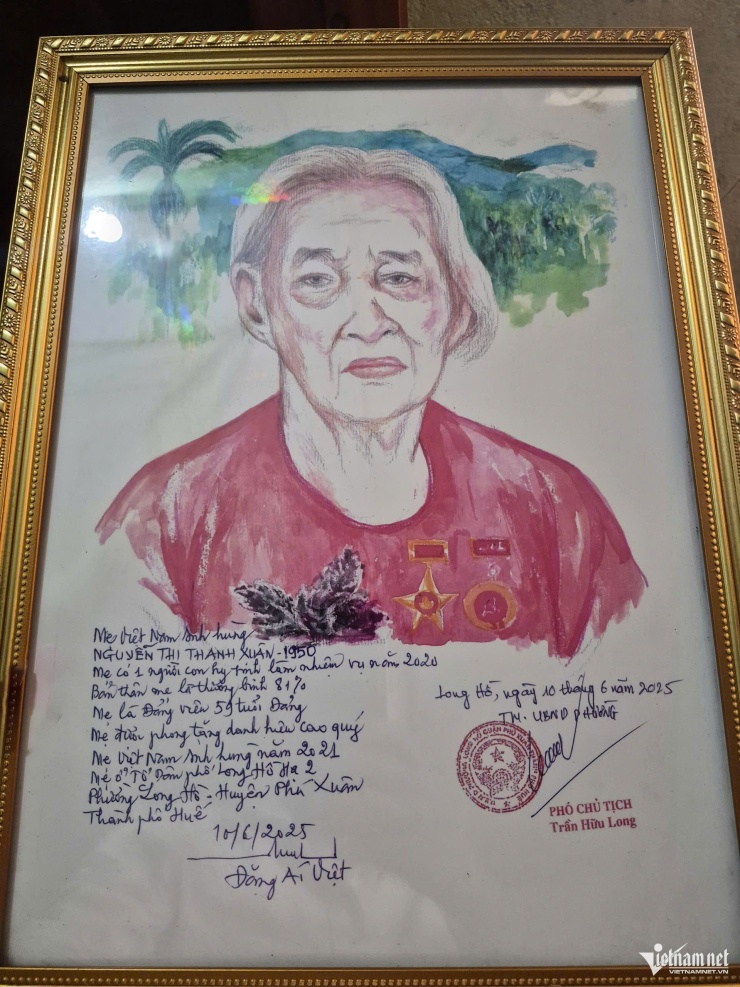 Mẹ Việt Nam Anh hùng
NGUYỄN THỊ THANH XUÂN - 1950
Mẹ có 1 người con hy sinh làm nhiệm vụ năm 2020
Bản thân mẹ là thương binh 81%
Mẹ là Đảng viên 55 tuổi Đảng
Mẹ được phong tặng danh hiệu cao quý
Mẹ Việt Nam Anh hùng năm 2021
Mẹ ở Tổ Dân phố Long Hồ Hạ 2
Phường Long Hồ - Huyện Phú Xuân
Thành phố Huế
10/6/2025
Đặng Ái Việt
Long Hồ, ngày 10 tháng 6 năm 2025
TM. UBND PHƯỜNG
PHÓ CHỦ TỊCH
Trần Hữu Long
Vietnamnet
VIETNAMNET.VN